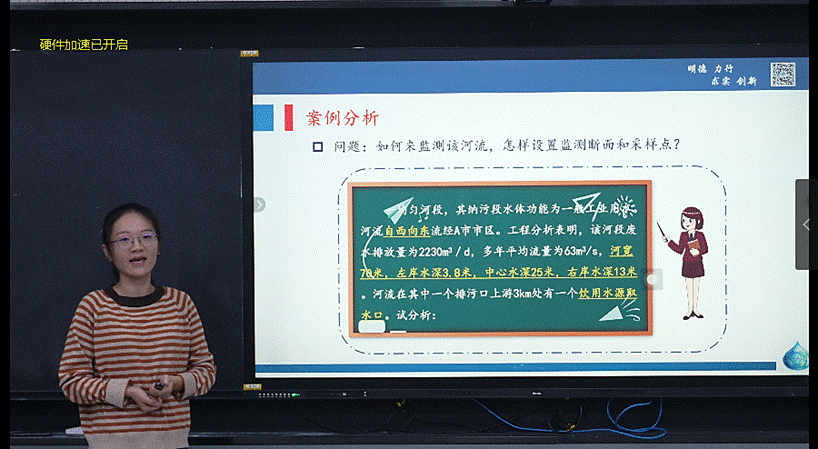 硬件加速已开启
明德 力行
求实 创新
案例分析
问题：如何来监测该河流，怎样设置监测断面和采样点？
匀河段，其纳污段水体功能为一般工业用水
河流自西向东流经A市市区。工程分析表明，该河段废
水排放量为2230m³/d，多年平均流量为63m³/s，河宽
70米，左岸水深3.8米，中心水深25米，右岸水深13米
。河流在其中一个排污口上游3km处有一个饮用水源取
水口。试分析：